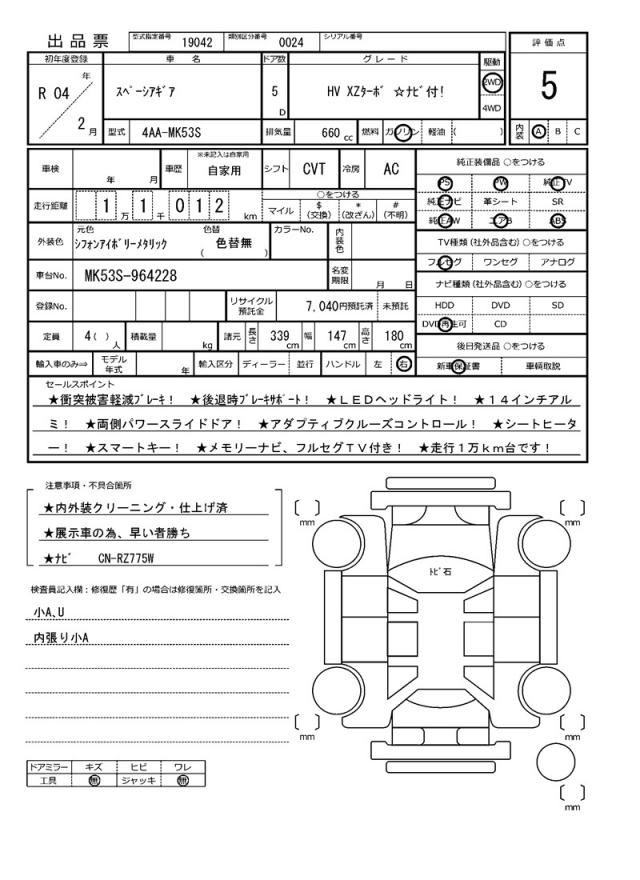 出品票 型式指定番号 19042 類別区分番号 0024 シリアル番号
評価点
5
内装 A B C
初年度登録 車名 ドア数 グレード 駆動
R 04 年 2 月 ｽﾍﾟｰｼｱｷﾞｱ 5 D HV XZﾀｰﾎﾞ ☆ﾅﾋﾞ付! 2WD
4WD
型式 4AA-MK53S 排気量 660 cc 燃料 ガソリン 軽油 ( )
車検 年 月 車歴 ※未記入は自家用 自家用 シフト CVT 冷房 AC
走行距離 1 万 1 千 0 1 2 km
○をつける
マイル $(交換) *(改ざん) #(不明)
外装色 元色 ｼﾌｫﾝｱｲﾎﾞﾘｰﾒﾀﾘｯｸ 色替 ( 色替無 ) カラーNo. 内装色
車台No. MK53S-964228 名変期限 月 日
登録No. リサイクル預託金 7,040円預託済 未預託
定員 4( )人 積載量 kg 諸元 長さ 339 cm 幅 147 cm 高さ 180 cm
輸入車のみ⇒ モデル年式 年 輸入区分 ディーラー 並行 ハンドル 左 右
純正装備品 ○をつける
PS PW 純正TV
純正ナビ 革シート SR
純正AW エアB ABS
TV種類(社外品含む) ○をつける
フルセグ ワンセグ アナログ
ナビ種類(社外品含む) ○をつける
HDD DVD SD
DVD再生可 CD
後日発送品 ○をつける
新車保証書 車輌取説
セールスポイント
★衝突被害軽減ﾌﾞﾚｰｷ! ★後退時ﾌﾞﾚｰｷｻﾎﾟｰﾄ! ★LEDヘッドライト! ★14インチアル
ミ! ★両側パワースライドドア! ★アダプティブクルーズコントロール! ★シートヒータ
ー! ★スマートキー! ★メモリーナビ、フルセグTV付き! ★走行1万km台です!
注意事項・不具合箇所
★内外装クリーニング・仕上げ済
★展示車の為、早い者勝ち
★ﾅﾋﾞ CN-RZ775W
検査員記入欄：修復歴「有」の場合は修復箇所・交換箇所を記入
小A､U
内張り小A
ドアミラー キズ ヒビ ワレ
工具 無 ジャッキ 無
mm
mm
ﾄﾋﾞ石
mm
mm
mm